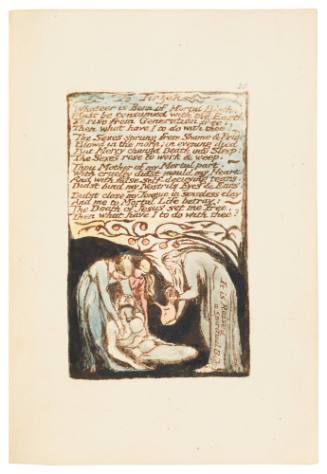 To Tirzah
Whate'er is Born of Mortal Birth,
Must be consumed with the Earth
To rise from Generation free;
Then what have I to do with thee?
The Sexes sprung from Shame & Pride
Blow'd in the morn; in evening died
But Mercy changd Death into Sleep;
The Sexes rose to work & weep.
Thou Mother of my Mortal part.
With cruelty didst mould my Heart.
And with false self-decieving tears,
Didst bind my Nostrils Eyes & Ears.
Didst close my Tongue in senseless clay
And me to Mortal Life betray:
The Death of Jesus set me free,
Then what have I to do with thee?
It is Raised
a Spiritual Body